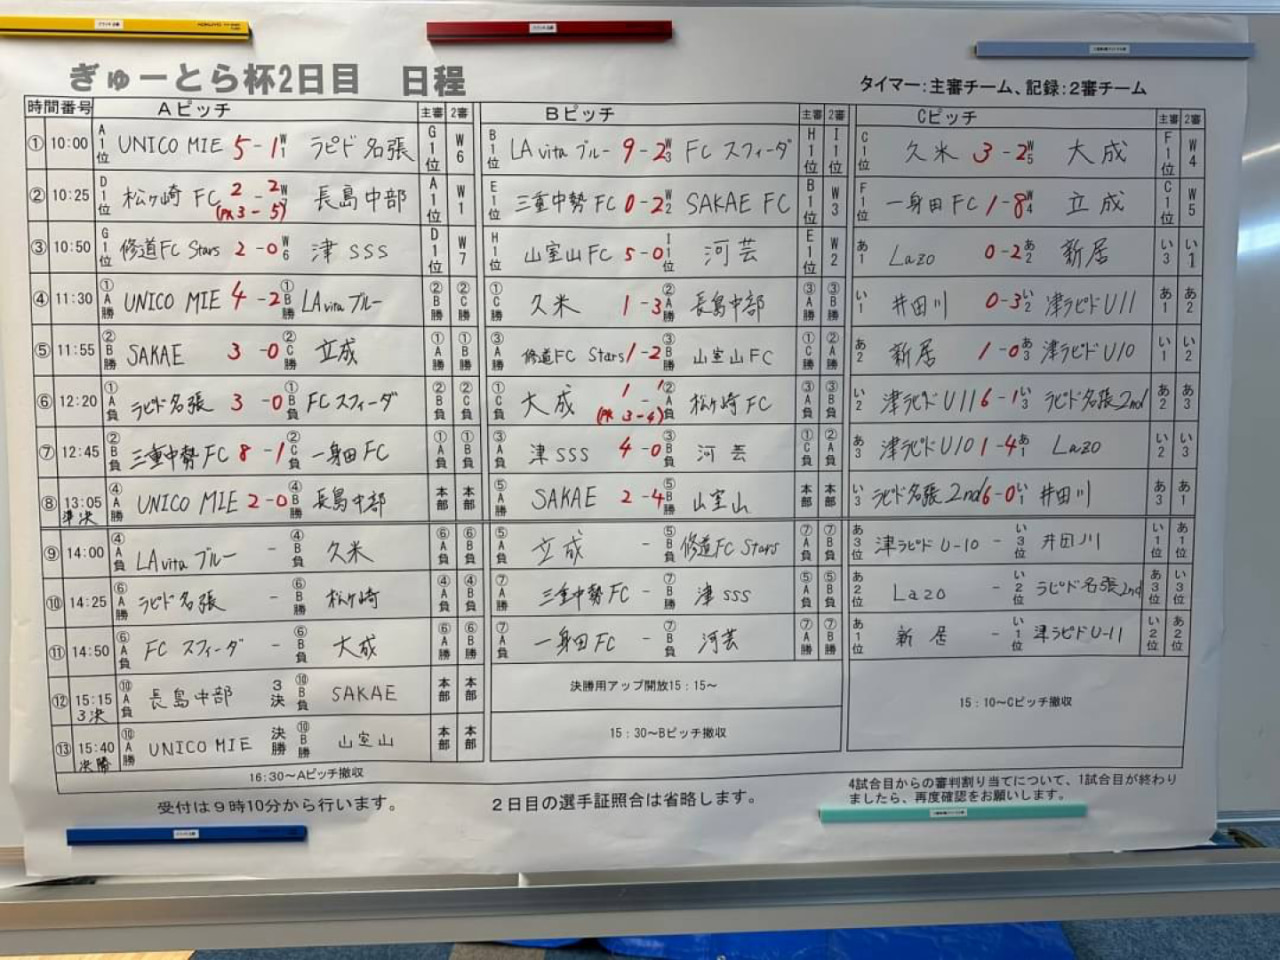 ぎゅーとら杯2日目 日程
タイマー:主審チーム、記録:2審チーム
時間番号 Aピッチ 主審 2審 Bピッチ 主審 2審 Cピッチ 主審 2審
① 10:00 A1位 UNICO MIE 5-1 W1 ラピド名張 G1位 W6 B1位 LAvita ブルー 9-2 W3 FC スフィーダ H1位 I1位 C1位 久米 3-2 W5 大成 F1位 W4
② 10:25 D1位 松ヶ崎 FC 2-2 (PK 3-5) W7 長島中部 A1位 W1 E1位 三重中勢 FC 0-2 W2 SAKAE FC B1位 W3 F1位 一身田 FC 1-8 W4 立成 C1位 W5
③ 10:50 G1位 修道FC Stars 2-0 W6 津 SSS D1位 W7 H1位 山室山 FC 5-0 I1位 河芸 E1位 W2 あ1 Lazo 0-2 あ2 新居 い3 い1
④ 11:30 ①A勝 UNICO MIE 4-2 ①B勝 LAvita ブルー ②B勝 ②C勝 ①C勝 久米 1-3 ②A勝 長島中部 ③A勝 ③B勝 い1 井田川 0-3 い2 津ラピド U11 あ1 あ2
⑤ 11:55 ②B勝 SAKAE 3-0 ②C勝 立成 ①A勝 ①B勝 ③A勝 修道FC Stars 1-2 ③B勝 山室山 FC ①C勝 ②A勝 あ2 新居 1-0 あ3 津ラピド U10 い1 い2
⑥ 12:20 ①A負 ラピド名張 3-0 ①B負 FC スフィーダ ②B負 ②C負 ①C負 大成 1-1 (PK 3-4) ②A負 松ヶ崎 FC ③A負 ③B負 い2 津ラピド U11 6-1 い3 ラピド名張 2nd あ2 あ3
⑦ 12:45 ②B負 三重中勢 FC 8-1 ②C負 一身田 FC ①A負 ①B負 ③A負 津 SSS 4-0 ③B負 河芸 ①C負 ②A負 あ3 津ラピド U10 1-4 あ1 Lazo い2 い3
⑧ 13:05 準決 ④A勝 UNICO MIE 2-0 ④B勝 長島中部 本部 本部 ⑤A勝 SAKAE 2-4 ⑤B勝 山室山 本部 本部 い3 ラピド名張 2nd 6-0 い1 井田川 あ3 あ1
⑨ 14:00 ④A負 LAvita ブルー - ④B負 久米 ⑥A負 ⑥B負 ⑤A負 立成 - ⑤B負 修道FC Stars ⑦A負 ⑦B負 あ3位 津ラピド U-10 - い3位 井田川 い1位 あ1位
⑩ 14:25 ⑥A勝 ラピド名張 - ⑥B勝 松ヶ崎 ④A負 ④B負 ⑦A勝 三重中勢 FC - ⑦B勝 津 SSS ⑤A負 ⑤B負 あ2位 Lazo - い2位 ラピド名張 2nd あ3位 い3位
⑪ 14:50 ⑥A負 FC スフィーダ - ⑥B負 大成 ⑥A勝 ⑥B勝 ⑦A負 一身田 FC - ⑦B負 河芸 ⑦A勝 ⑦B勝 あ1位 新居 - い1位 津ラピド U-11 い2位 あ2位
⑫ 15:15 3決 ⑩A負 長島中部 3決 ⑩B負 SAKAE 本部 本部 決勝用アップ開放15:15~
15:10~Cピッチ撤収
⑬ 15:40 決勝 ⑩A勝 UNICO MIE 決勝 ⑩B勝 山室山 本部 本部 15:30~Bピッチ撤収
16:30~Aピッチ撤収
受付は9時10分から行います。
2日目の選手証照合は省略します。
4試合目からの審判割り当てについて、1試合目が終わり
ましたら、再度確認をお願いします。